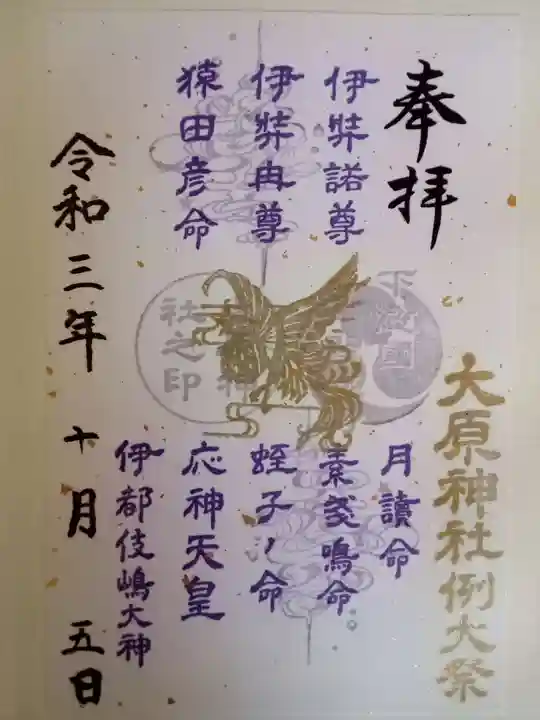 奉拝
大原神社例大祭
伊弉諾尊
伊弉冉尊
猿田彦命
月讀命
素戔鳴命
蛭子ノ命
応神天皇
伊都伎嶋大神
下総国
社之印
令和三年十月五日